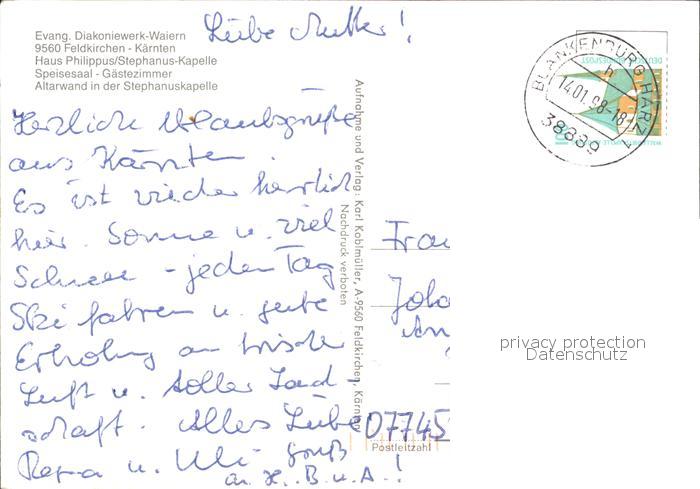 Evang. Diakoniewerk-Waiern
9560 Feldkirchen - Kärnten
Haus Philippus/Stephanus-Kapelle
Speisesaal - Gästezimmer
Altarwand in der Stephanuskapelle
Liebe Mutter!
Herzliche Urlaubsgrüße
aus Kärnten.
Es ist wieder herrlich
hier. Sonne u. viel
Schnee - jeden Tag
Ski fahren u. gute
Erholung an frischer
Luft u. toller Land-
schaft. Alles Liebe
u. Uli Gruß
an H.. B. u. A.!
Aufnahme und Verlag: Karl Koblmüller, A-9560 Feldkirchen, Kärnten
Nachdruck verboten
BLANKENBURG HARZ
h
14.01.98-18
38889
DEUTSCHE BUNDESPOST
Frau
Joha
07745
Postleitzahl
privacy protection
Datenschutz